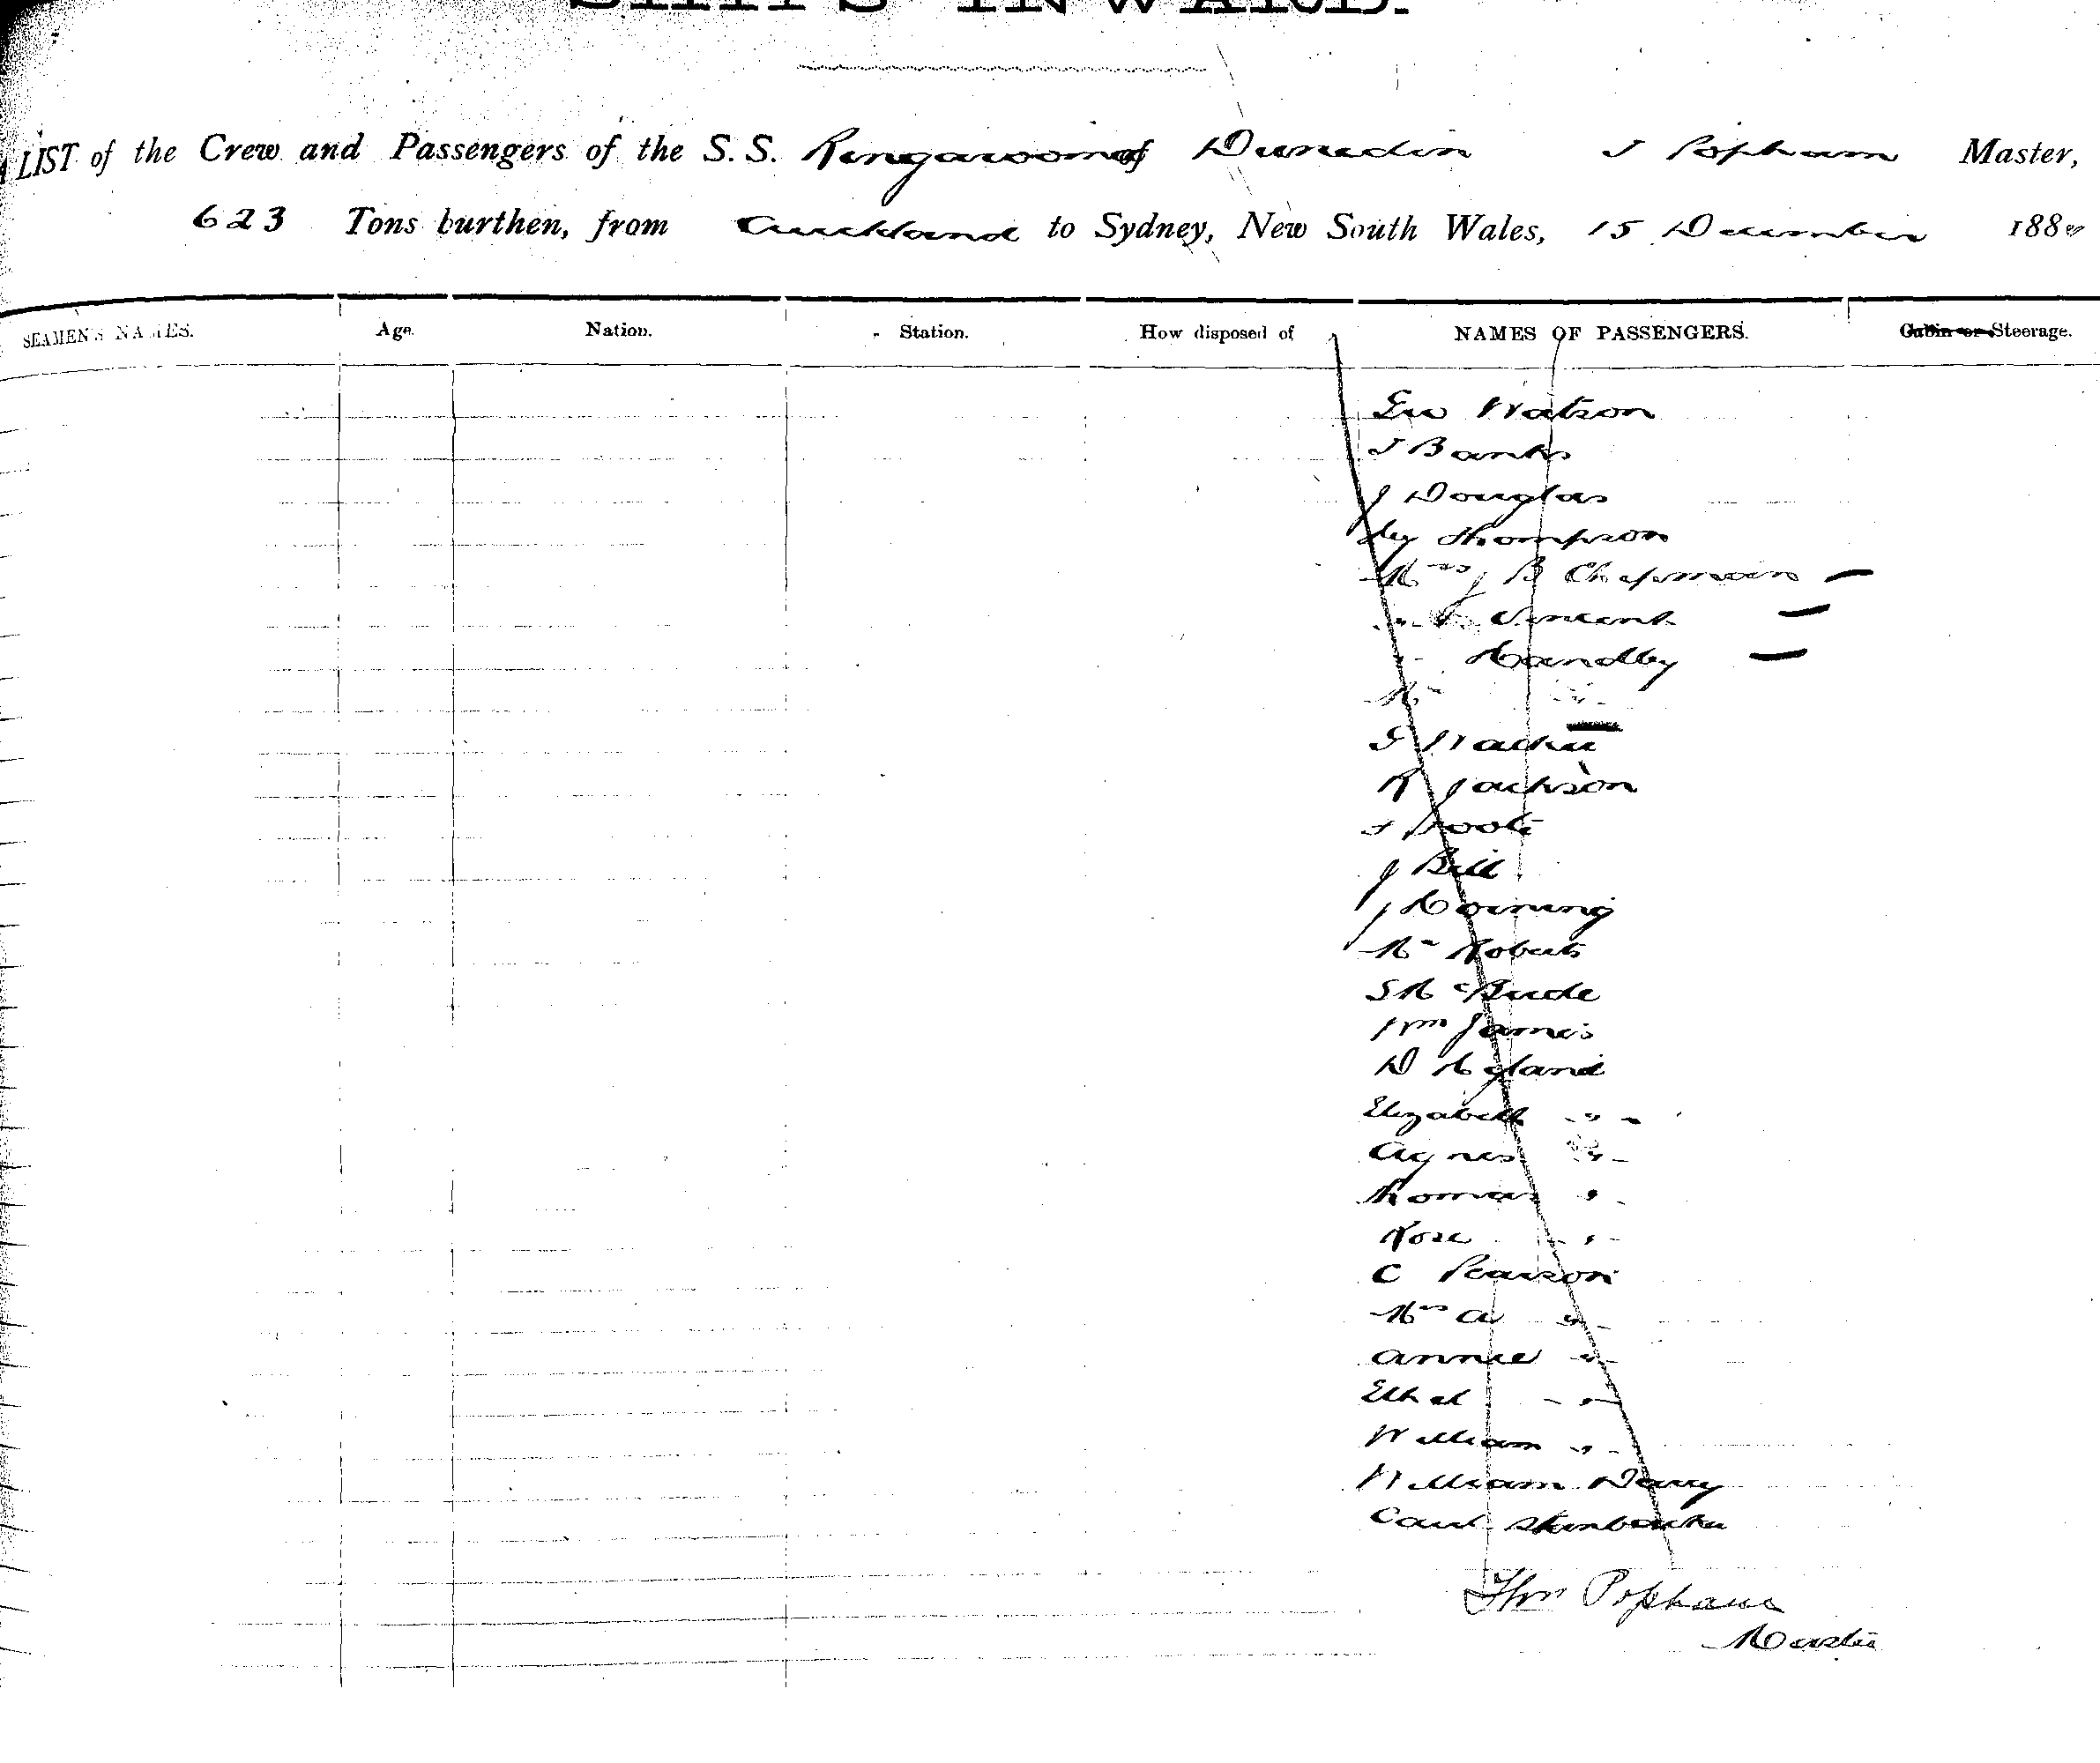 SHIPS INWARD.
LIST of the Crew and Passengers of the S.S. Ringarooma of Dunedin J Popham Master,
623 Tons burthen, from Auckland to Sydney, New South Wales, 15 December 188
SEAMEN'S NAMES. Age. Nation. Station. How disposed of NAMES OF PASSENGERS. Cabin or Steerage.
Geo Watson
J Banks
J Douglas
Hy Thompson
Mrs J B Chapman —
" Vincent —
" Handby —
Mr "
J
R Jackson
J Poole
J Bell
J Horning
Mr Roberts
S McBride
Wm James
D Hyland
Elizabeth "
Agnes "
Thomas "
Rose "
C Pearson
Mrs A "
Annie "
Ethel "
William "
William Davy
Carl
Thos Popham
Master